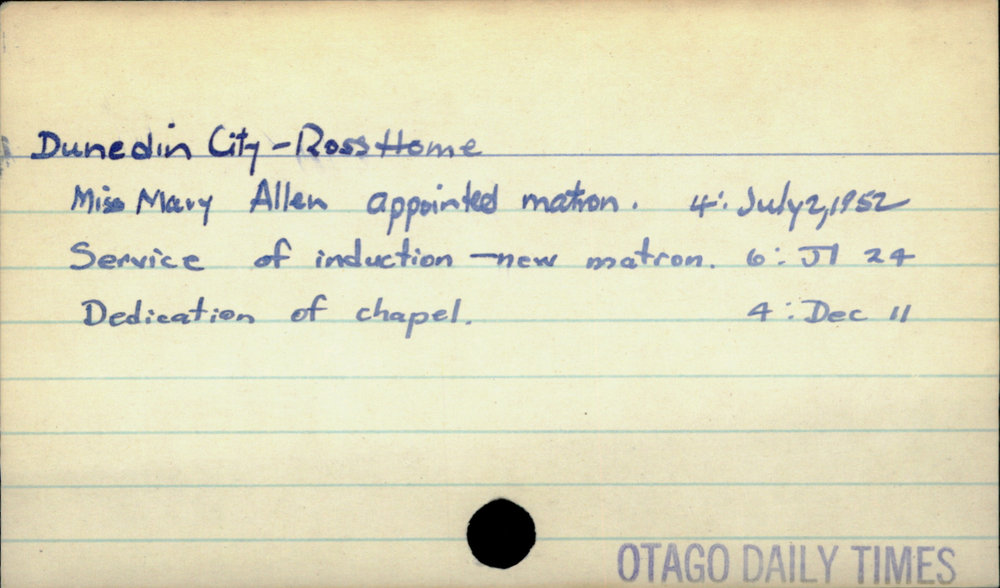 Dunedin City - Ross Home
Miss Mary Allen appointed matron. 4: July 2, 1952
Service of induction - new matron. 6: Jl 24
Dedication of chapel. 4: Dec 11
OTAGO DAILY TIMES